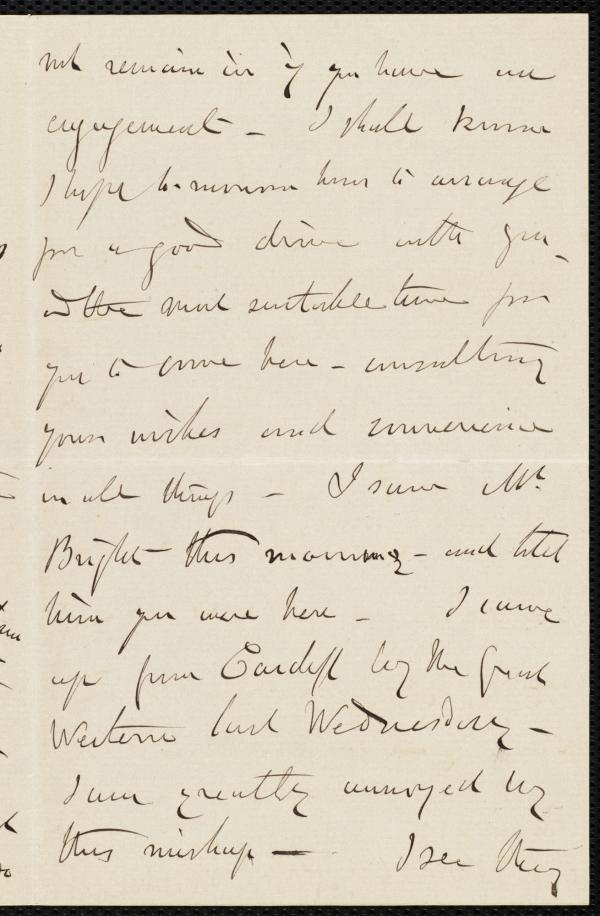 not remain in if you have an
engagement - I shall know
I hope to-morrow how to arrange
for a good drive with you -
& the most suitable time for
you to come here - consulting
your wishes and convenience
in all things - I saw Mr.
Bright this morning - and told
him you were here - I came
up from Cardiff by the Great
Western last Wednesday -
I am greatly annoyed by
this mishap - I see they